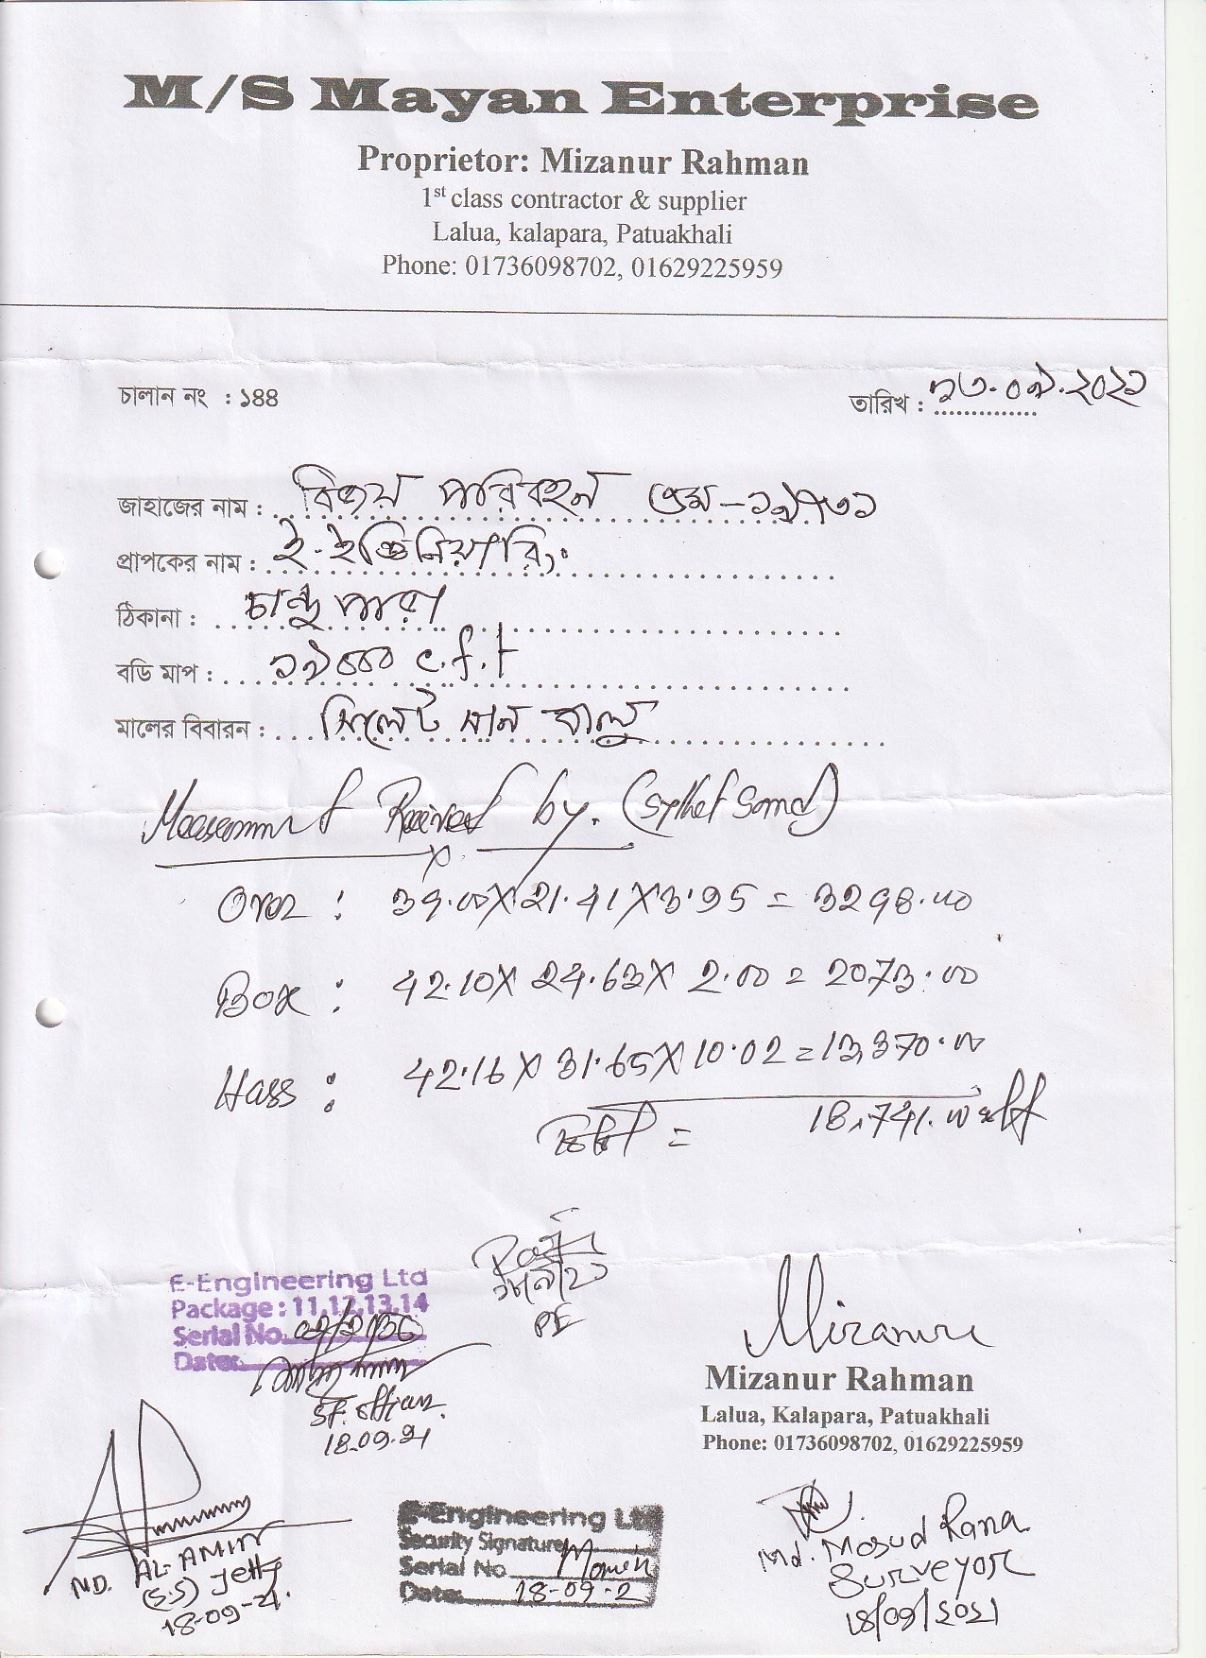 M/S Mayan Enterprise
Proprietor: Mizanur Rahman
1st class contractor & supplier
Lalua, kalapara, Patuakhali
Phone: 01736098702, 01629225959
চালান নং : ১৪৪
তারিখ : ১৩.০৯.২০২১
জাহাজের নাম : বিজয় পরিবহন এম-১৯৭৩১
প্রাপকের নাম : ই-ইঞ্জিনিয়ারিং
ঠিকানা : চান্দু পারা
বডি মাপ : ১৯৫৫০ c.f.t
মালের বিবারন : সিলেট সান বালু
Measurment Received by. (Sylhet Sand)
Over : 39.00 X 21.41 X 3.95 = 3298.00
Box : 42.10 X 24.63 X 2.00 = 2073.00
Hass : 42.16 X 31.65 X 10.02 = 13,370.00
Total = 18,741.00 cft
E-Engineering Ltd
Package : 11,12,13,14
Serial No.
Date:
PE
18.09.21
Mizanur
Mizanur Rahman
Lalua, Kalapara, Patuakhali
Phone: 01736098702, 01629225959
MD. AL-AMIN
(S.S) Jetty
18-09-21.
E-Engineering Ltd
Security Signature Momin
Serial No
Date: 18-09-2
Md. Mosud Rana
Surveyor
18/09/2021